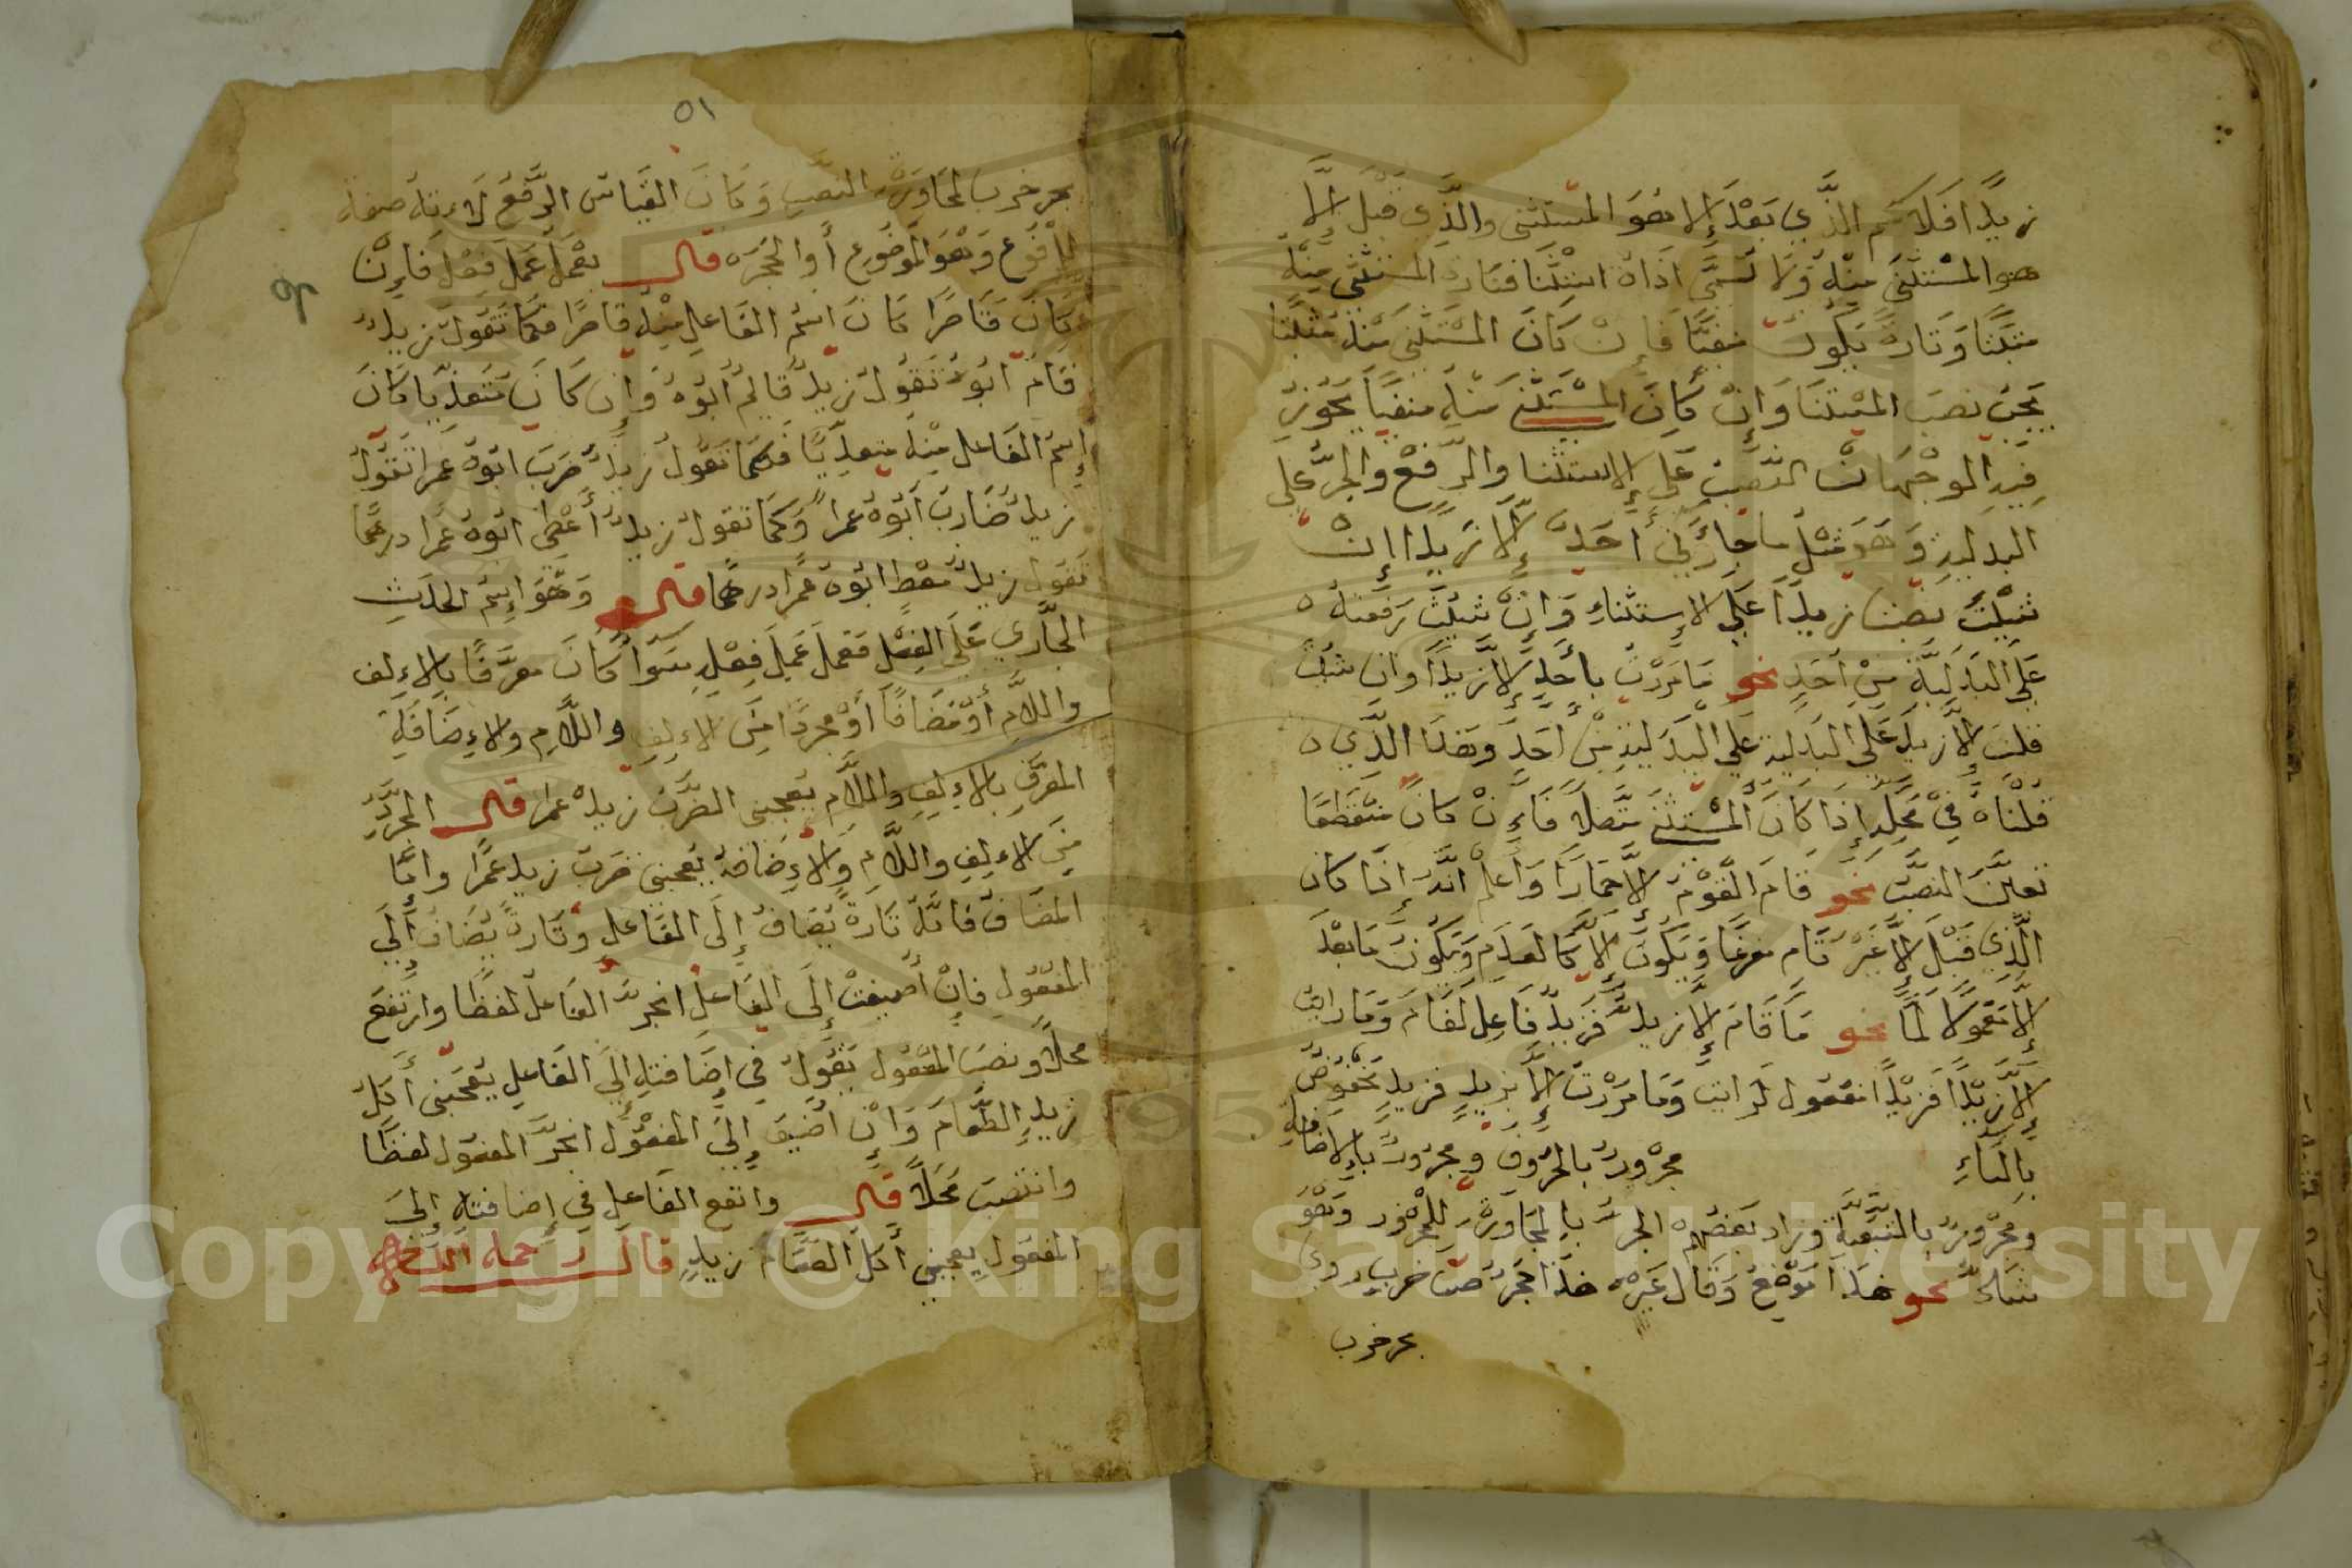 زيدًا فلاسم الذي بعد إلا هو المستثنى والذي قبل إلا
هو المستثنى منه ولا تسمى اداة استثنا فتارة المستثنى منه
مثبتا وتارة يكون منفيا فإن كان المستثنى منه مثبتا
يجب نصب المستثنا وإن كان المستثنى منه منفيا يجوز
فيه الوجهان النصب على الاستثنا والرفع والجر على
البدلية وهو مثل ما جاءني أحد إلا زيدا إن
شيت نصبت زيدا على الاستثناء وإن شيت رفعته
على البدلية من أحد نحو ما مررت بأحد إلا زيدا وان شيت
قلت إلا زيد على البدلية على البدلية من أحد وهذا الذي
قلناه في محله إذا كان المستثنى متصلا فإن كان منقطعا
تعين النصب نحو قام القوم إلا حمارا واعلم انه إذا كان
الذي قبل إلا غير تام مفرغا ويكون إلا كالعدم ويكون ما بعد
إلا معمولا لما نحو ما قام إلا زيد فزيد فاعل لقام وما رايت
إلا زيدًا فزيدًا مفعول لرايت وما مررت إلا بزيد فزيد مخفوض
بالباء مجرور بالحروف ومجرور بالاضافة
ومجرور بالتبعية وزاد بعضهم الجر بالمجاورة للمجرور وهو
شاذ نحو هذا وقال غيره هذا حجر ضب خرب روي
بحر خرب
٥١
بحر خرب لمجاورة النصب وكان القياس الرفع لانه صفة
المرفوع وهو الموضوع أو الحجر قال يعمل عمل فعل فإن
كان قاصرا كان اسم الفاعل منه قاصرًا فكما تقول زيد
قام ابوه تقول زيد قايم أبوه وإن كان متعديا كان
إسم الفاعل منه متعديًا فكما تقول زيد ضرب ابوه عمرا تقول
زيد ضارب أبوه عمرا وكما تقول زيد أعطي ابوه عمرا درهما
تقول زيد معط ابوه عمرا درهما قال وهو إسم الحدث
الجاري على الفعل فعمل عمل فعله سوا كان معرفًا بالالف
واللام أو مضافًا أو مجردا من الالف واللام والإضافة
المعرف بالالف واللام يعجبني الضرب زيد عمرا قال المجرد
من الالف واللام والإضافة يعجبني ضرب زيد عمرا واما
المضاف فانه تارة يضاف إلى الفاعل وتارة يضاف ألي
المفعول فإن أضيفت إلى الفاعل انجر الفاعل لفظًا وارتفع
محلا ونصب المفعول يقول في إضافته إلى الفاعل يعجبني أكل
زيد الطعام وإن اضيف إلى المفعول انجر المفعول لفظا
وانتصب محلا قال وانفع الفاعل في إضافته إلى
المفعول يعجبني أكل الطعام زيد قال رحمه الله
Copyright © King Saud University